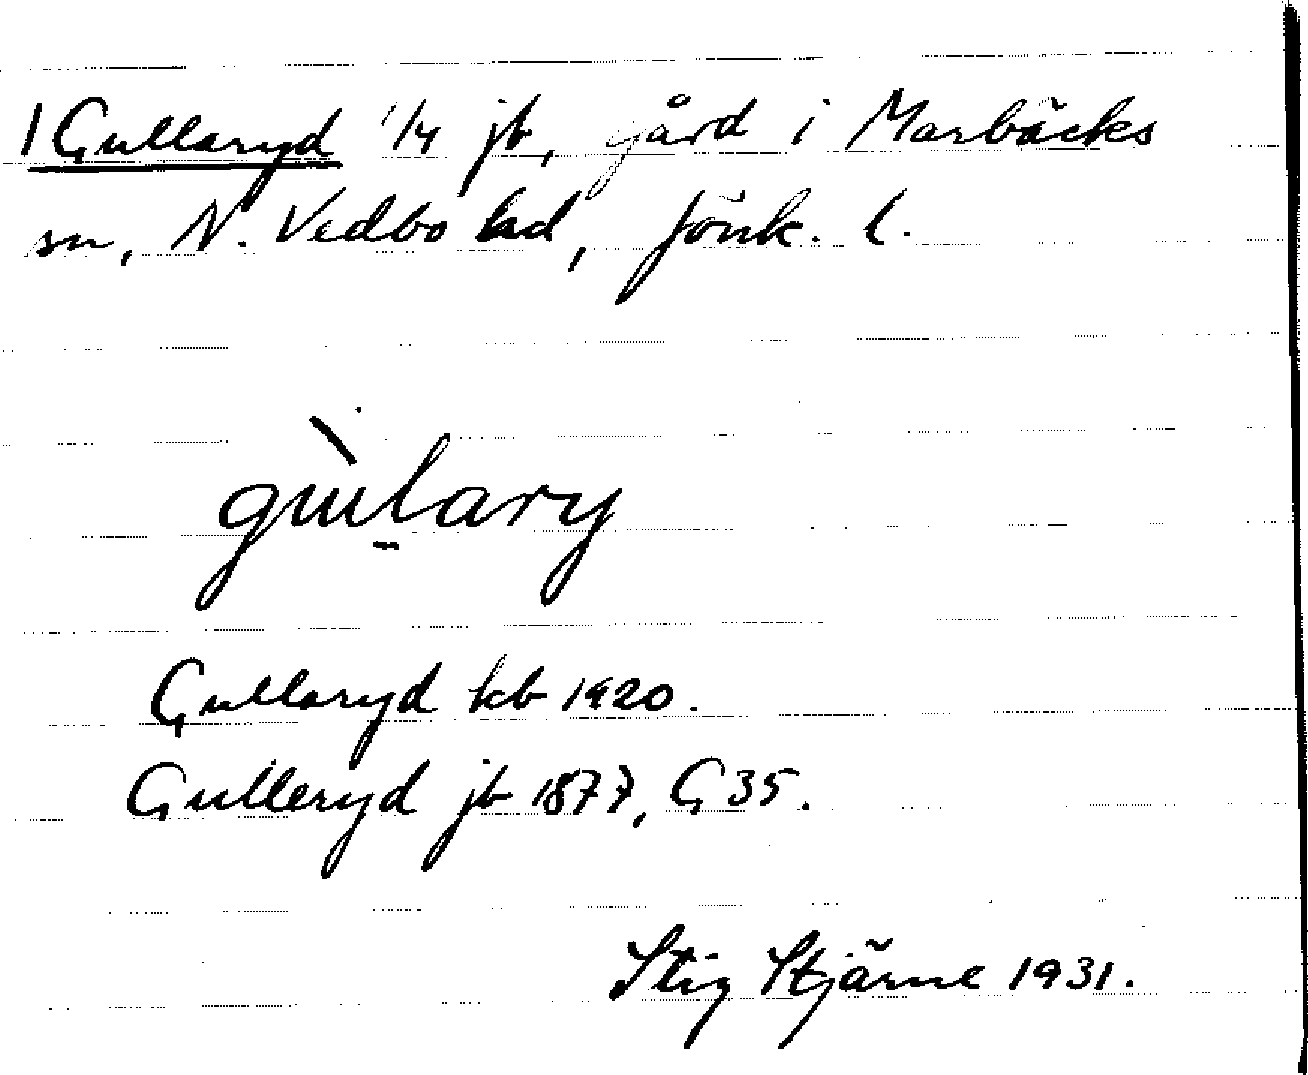 1 Gullaryd 1/4 jb, gård i Marbäcks
sn, N. Vedbo hd, Jönk. l.
gùlary
Gullaryd kb 1920.
Gulleryd jb 1877, G 35.
Stig Stjärne 1931.